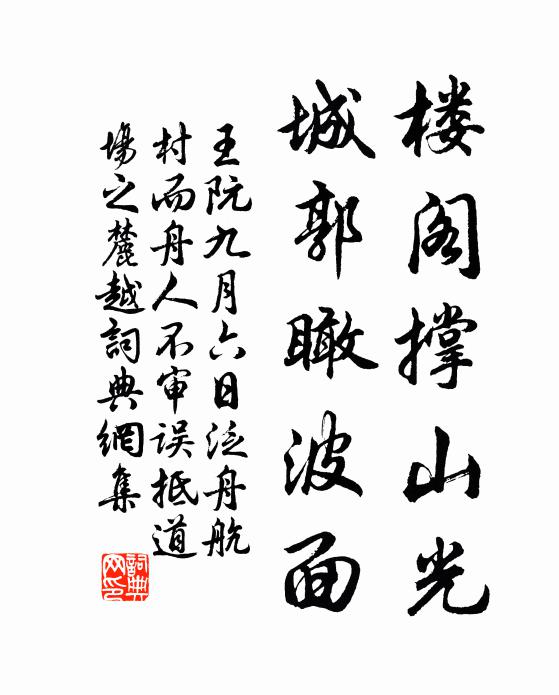 楼阁撑山光
城郭瞰波面
王阮九月六日泛舟航
村而舟人不审误抵道
场之麓越詞典網集
詞典
网印